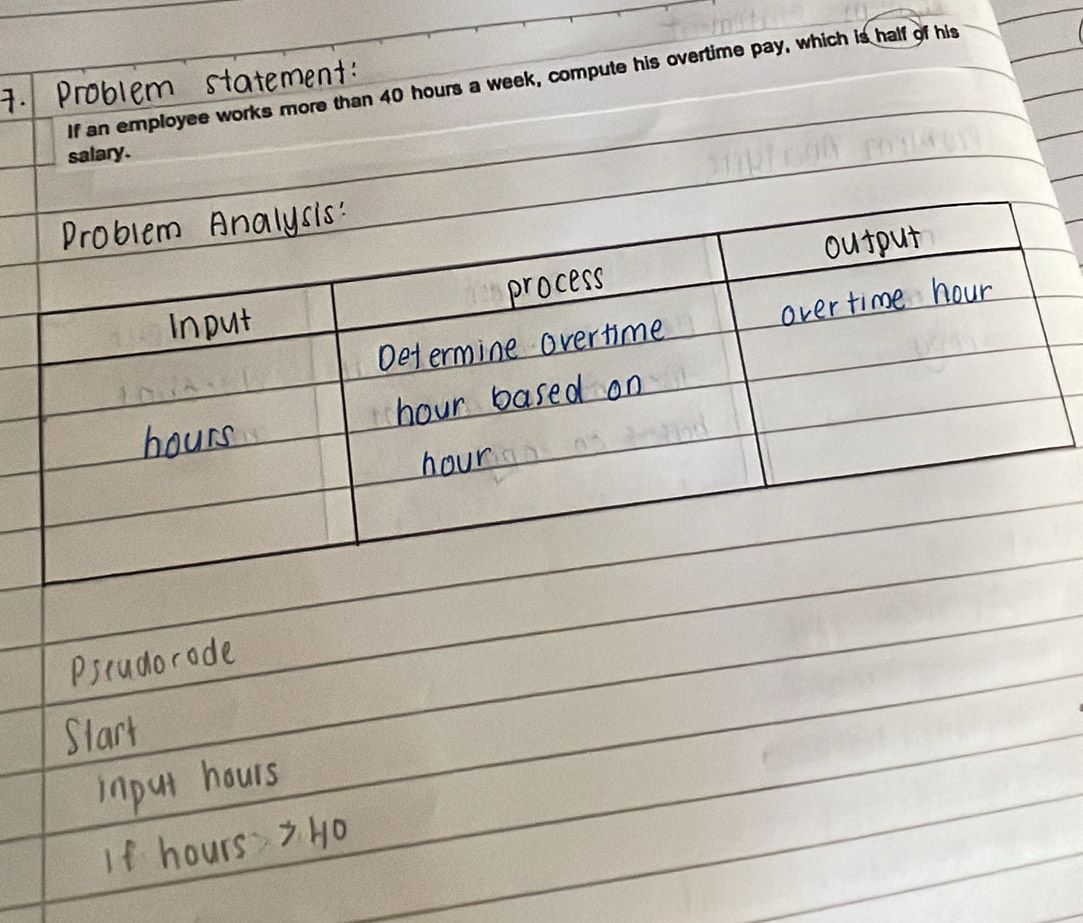 7. Problem statement:
If an employee works more than 40 hours a week, compute his overtime pay, which is half of his
salary.
Problem Analysis:
Input process output
hours Determine overtime overtime hour
hour based on
hour
Pseudocode
Start
input hours
if hours > 40